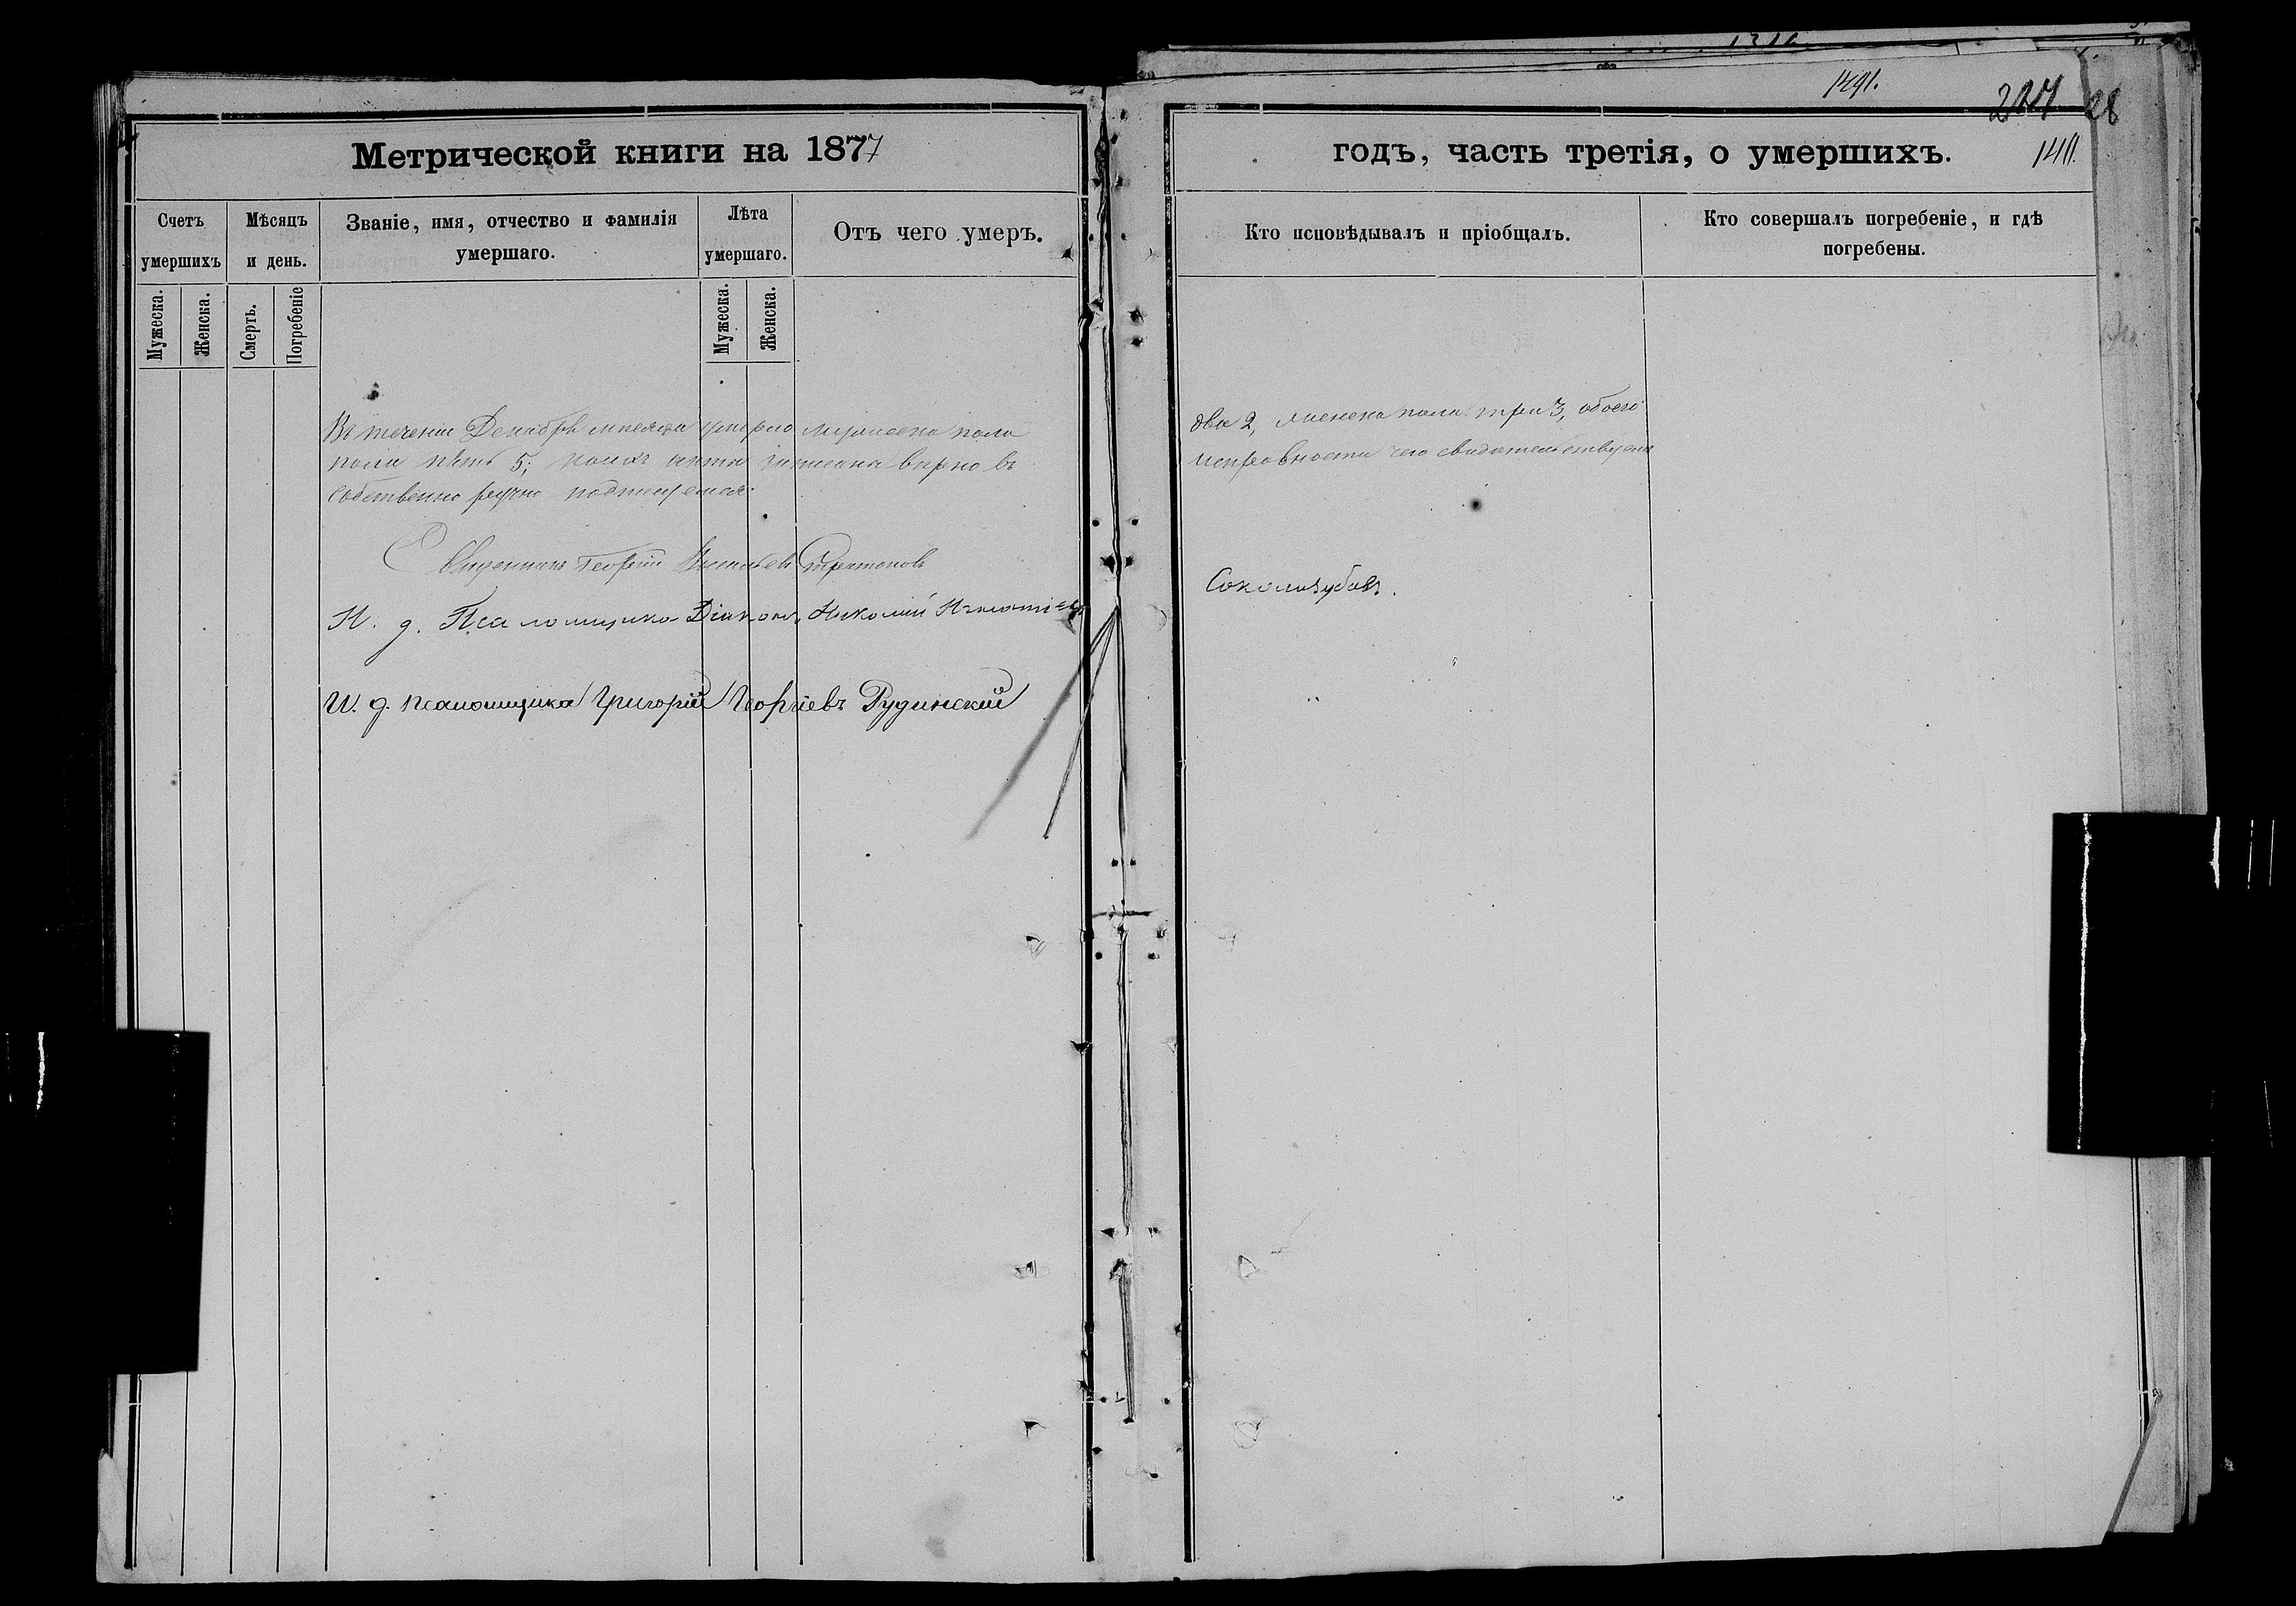 1491.
28
1411.
Метрической книги на 1877
годъ, часть третія, о умершихъ.
Счетъ умершихъ
Мѣсяцъ и день.
Званіе, имя, отчество и фамилія умершаго.
Лѣта умершаго.
Отъ чего умеръ.
Кто исповѣдывалъ и пріобщалъ.
Кто совершалъ погребеніе, и гдѣ погребены.
Мужеска.
Женска.
Смерть.
Погребеніе
Мужеска.
Женска.
Въ теченіи Декабря мѣсяца умерло мужеска пола два 2, женска пола три 3, обоего
пола пять 5; коихъ акты записаны вѣрно въ исправности чего свидѣтельствуемъ
собственно ручно подписуемся:
Священникъ Георгій
И. д. Псаломщика Діаконъ Николай Игнатіевъ Соколизубовъ.
И. д. псаломщика Григорій Георгіевъ Рудинскій